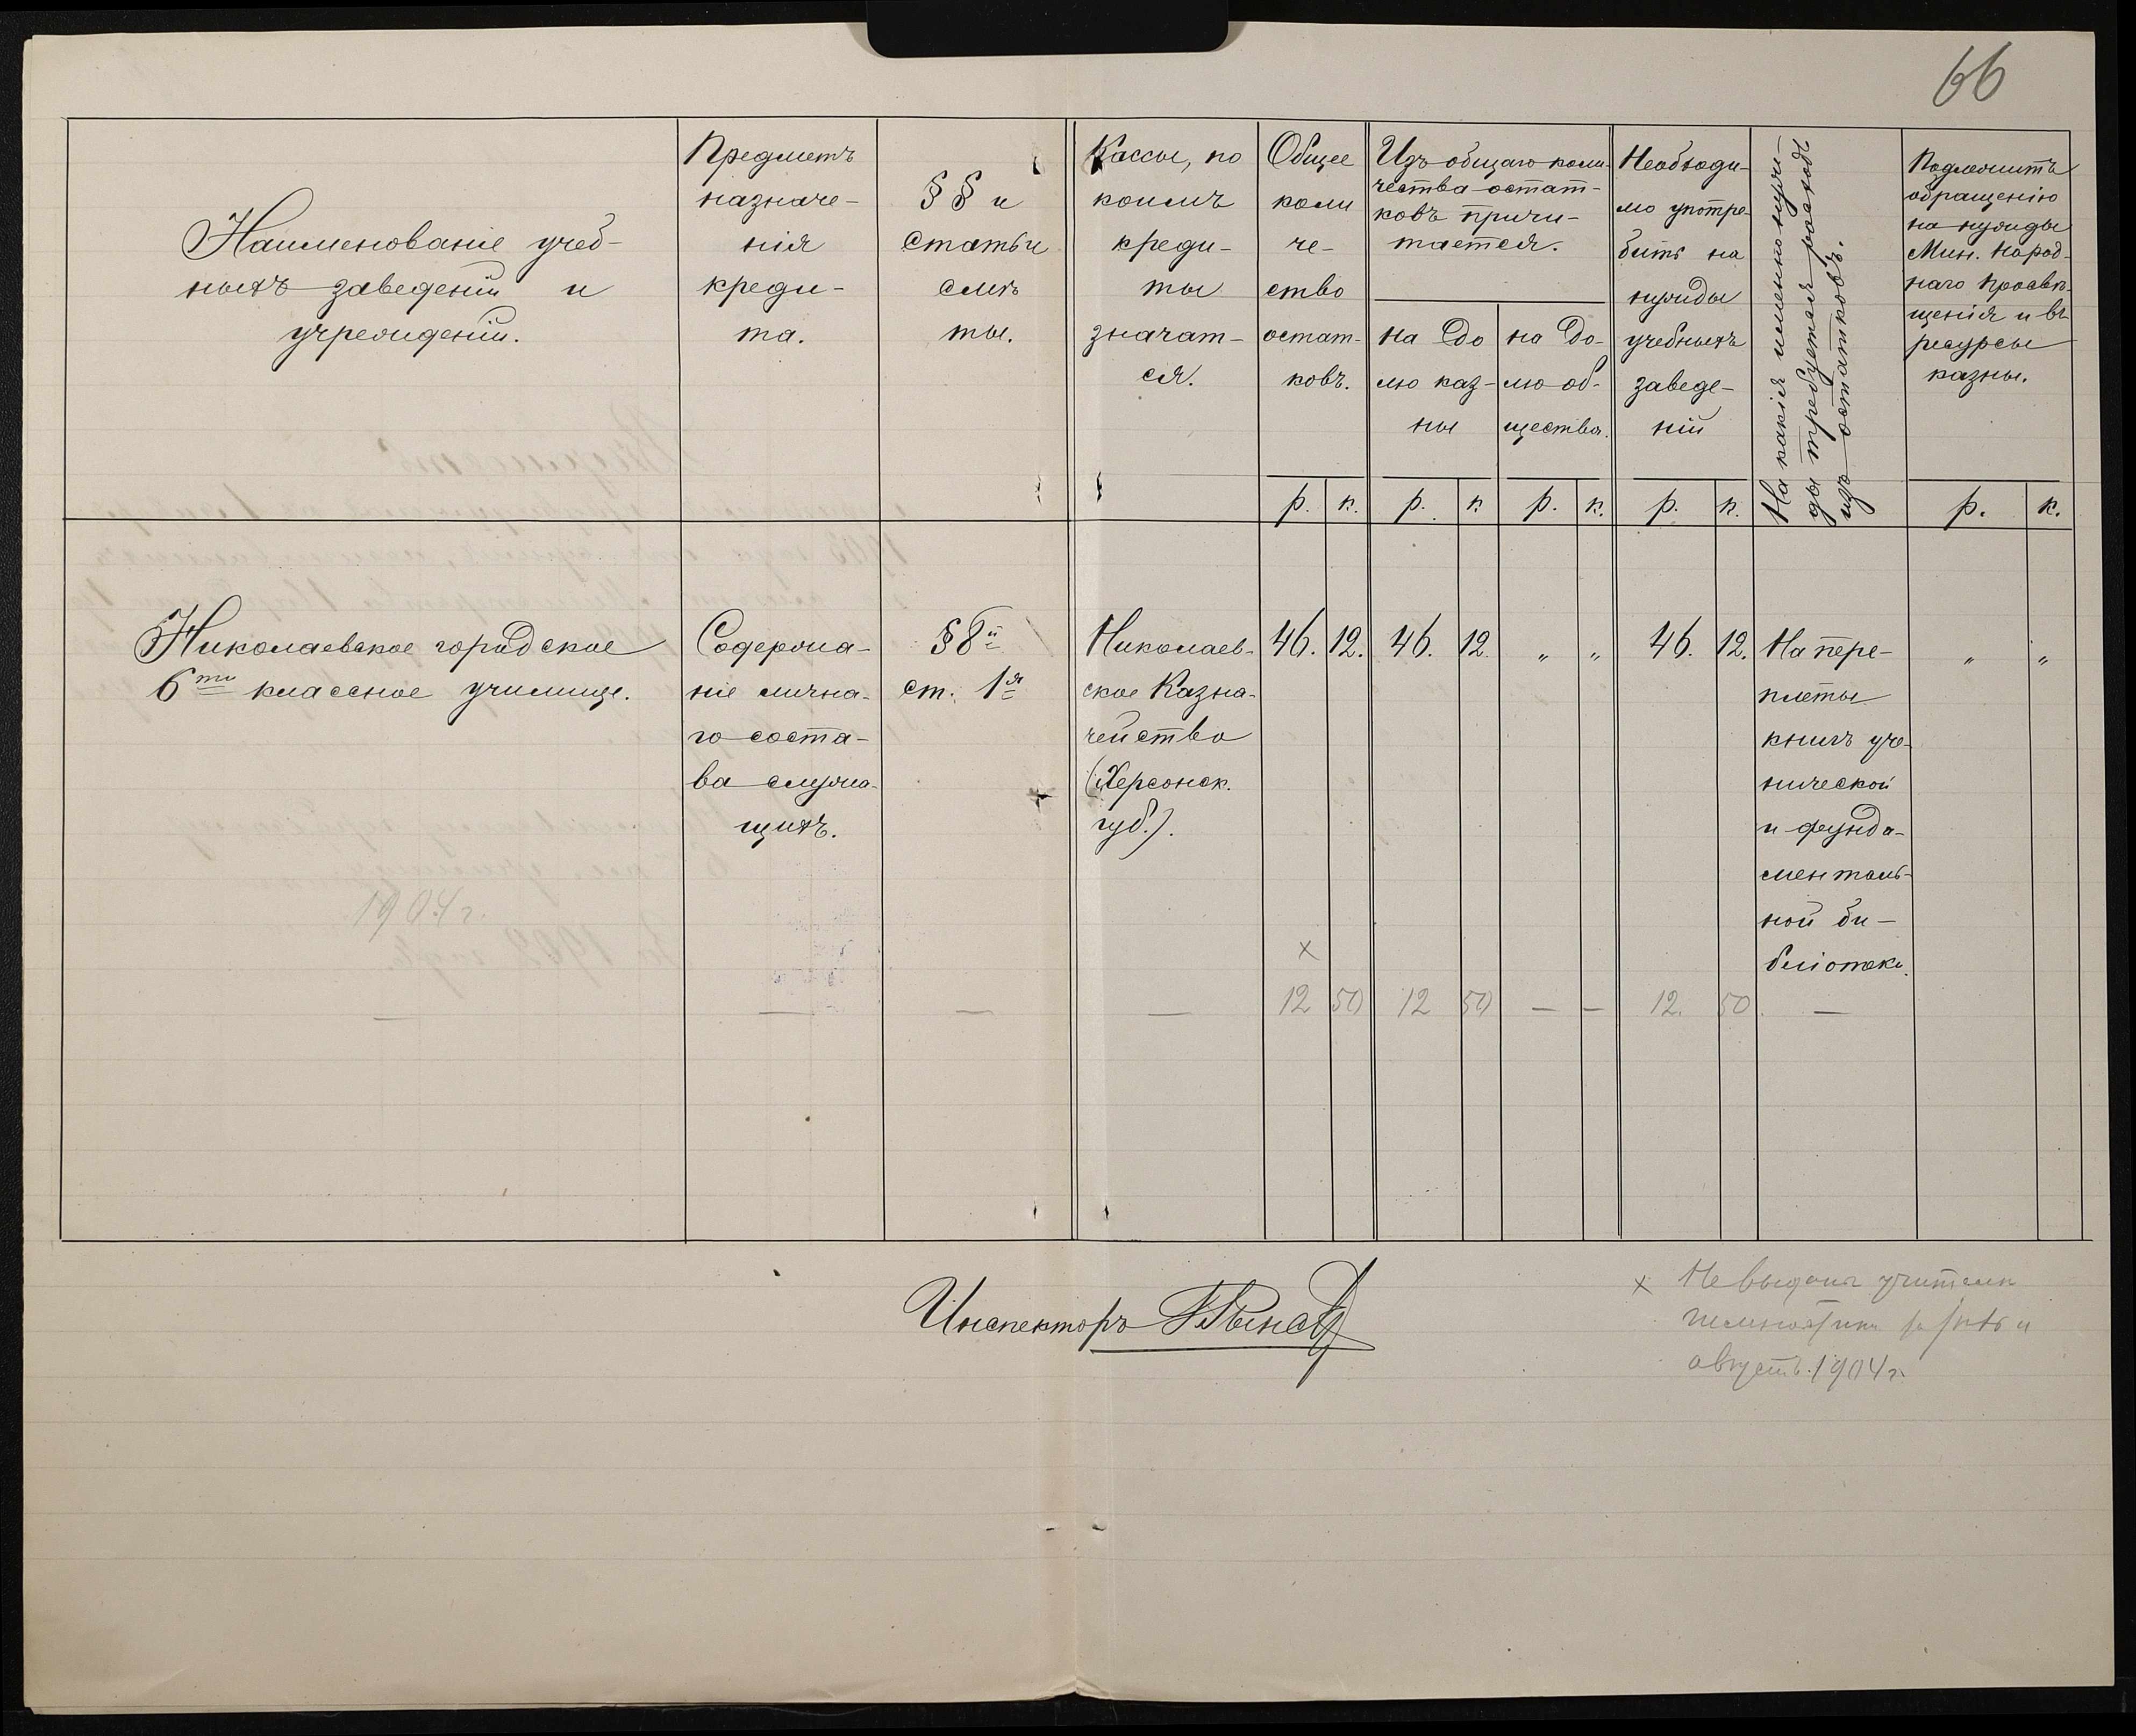 66
Наименованіе учеб-
ныхъ заведеній и
учрежденій.
Предметъ
назначе-
нія
креди-
та.
§§ и
статьи
смѣ
ты.
Кассы, по
коимъ
креди-
ты
значат-
ся.
Общее
коли
че-
ство
остат-
ковъ.
р. к.
Изъ общаго коли-
чества остат-
ковъ причи-
тается.
на до
лю каз-
ны
р. к
на до-
лю об-
щества.
р. к.
Необходи-
мо употре-
бить на
нужды
учебныхъ
заведе-
ній
р. к.
На какія именно нуж-
ды требуется расходъ
изъ остатковъ.
Подлежитъ
обращенію
на нужды
Мин. Народ-
наго Просвѣ-
щенія и въ
ресурсы
казны.
р. к.
Николаевское городское
6ти классное училище.
Содержа-
ніе лична-
го соста-
ва служа-
щихъ.
§ 8й
ст. 1я
Николаев-
ское Казна-
чейство
(Херсонск.
губ.).
46. 12. 46. 12. " " 46. 12.
На пере-
плеты
книгъ уче-
нической
и фунда-
менталь-
ной би-
бліотекъ.
" "
1904 г.
×
— — — — 12 50 12 50 — — 12. 50 —
Инспекторъ
× Не выдана учителю
гимнастики за іюль и
августъ 1904 г.